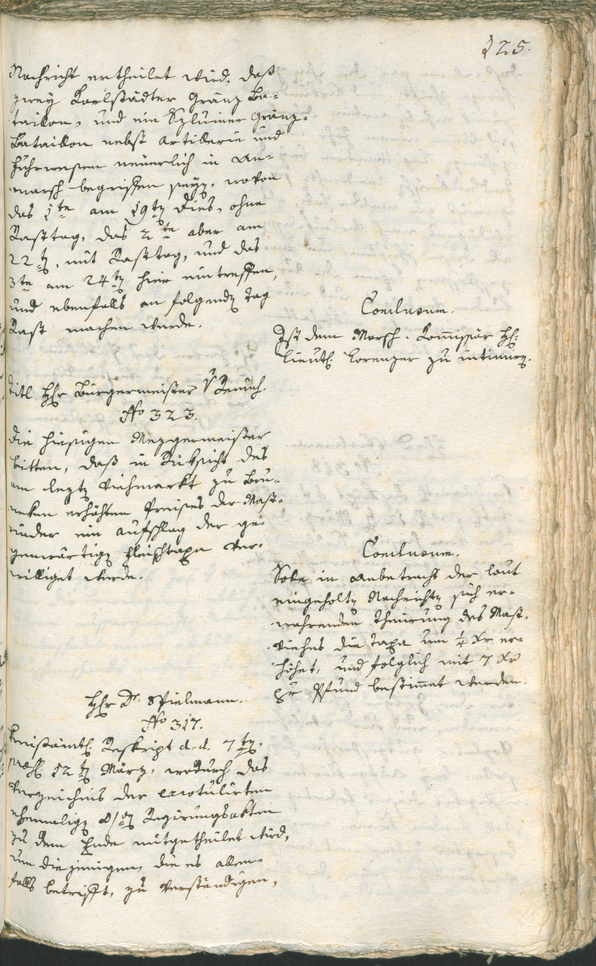 125.
Nachricht ertheilet wird, daß
zwey Karlstädter Gränz Ba-
taillon, und ein Szluiner Gränz-
Bataillon nebst Artillerie und
Fuhrwesen neuerlich in An-
marsch begriffen seyn, wovon
das 1te am 19ten dies, ohne
Rasttag, das 2te aber am
22ten, mit Rasttag, und das
3te am 24ten hier eintreffen,
und ebenfalls an folgenden Tag
Rast machen werde.
Conclusum.
Ist dem Marsch-Commissär H:
Lieut. Lorenzer zu intimiren.
Titl Hhr Bürgermeister v
No 323.
Die hiesigen Mezgermeister
bitten, daß in Rücksicht des
am lezten Viehmarkt zu Bru-
neken erhöhten Preises der Mast-
rinder ein Aufschlag der ge-
genwärtigen Fleischtaxa ver-
williget werde.
Conclusum.
Solle in Anbetracht der laut
eingeholten Nachrichten sich er-
wahrenden Theuerung des Mast-
viehes die Taxa um 1/4 Xr er-
höhet, und folglich mit 7 Xr
pr Pfund bestimmt werden.
Hhr Dr. Spielmann.
No 317.
Kreisämtl. Reskript d.d. 7ten
präs. 12ten März, wodurch das
Verzeichnis der exrotulirten
ehemaligen Regierungsakten
zu dem Ende mitgetheilet wird,
um diejenigen, die es allen-
falls betrifft, zu verständigen,